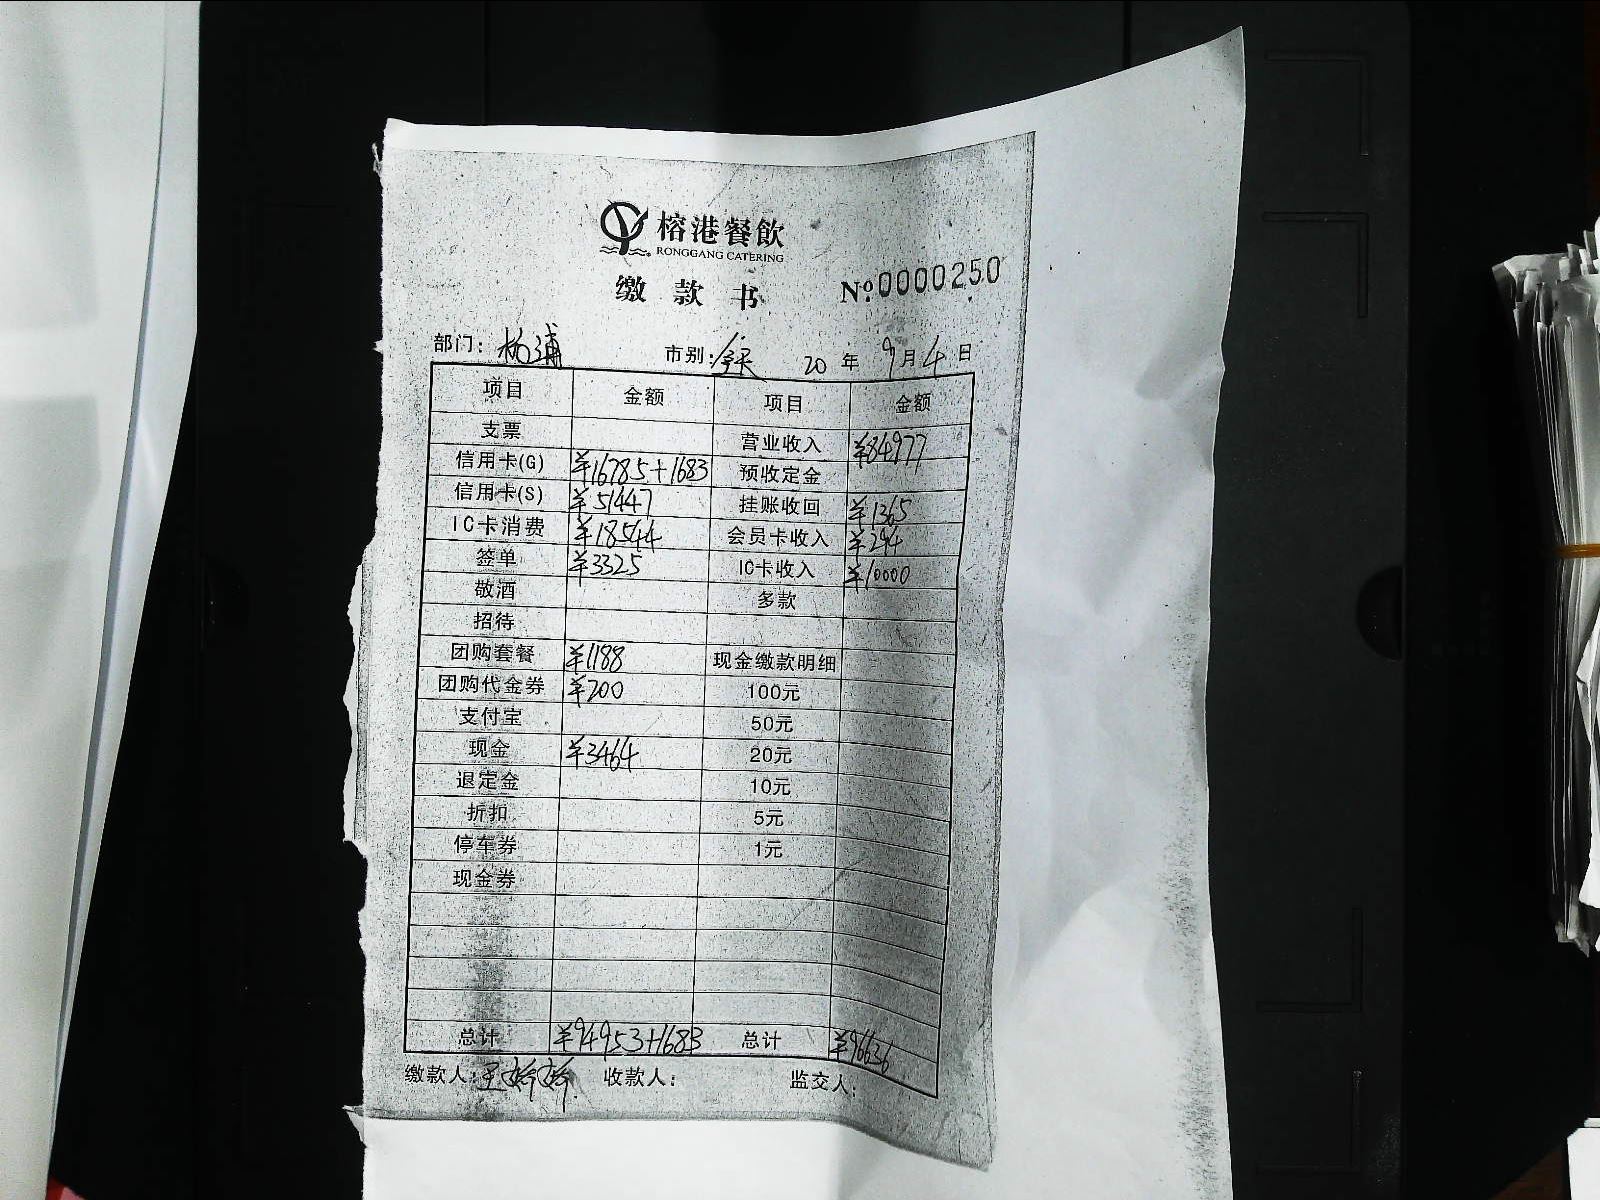 榕港餐飲
RONGGANG CATERING
缴款书
Nº:0000250
部门: 杨浦 市别: 全天 20 年 9月4日
项目 金额 项目 金额
支票 营业收入 ¥84977
信用卡(G) ¥16785+1683 预收定金
信用卡(S) ¥51447 挂账收回 ¥1365
IC卡消费 ¥18544 会员卡收入 ¥294
签单 ¥3325 IC卡收入 ¥10000
敬酒 多款
招待
团购套餐 ¥1188 现金缴款明细
团购代金券 ¥200 100元
支付宝 50元
现金 ¥3464 20元
退定金 10元
折扣 5元
停车券 1元
现金券
总计 ¥94953+1683 总计 ¥96636
缴款人: 王婷婷 收款人: 监交人: